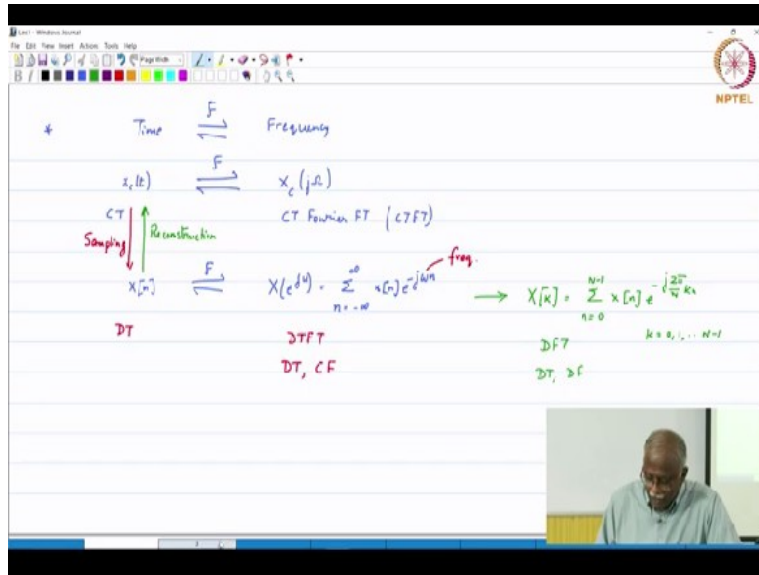 Lec1 - Windows Journal
File Edit View Insert Actions Tools Help
Page Width
NPTEL
* Time F ⇌ Frequency
x_c(t) F ⇌ X_c(jΩ)
CT CT Fourier FT (CTFT)
Sampling Reconstruction
freq.
x[n] F ⇌ X(e^{jω}) = Σ_{n=-∞}^{∞} x[n] e^{-jωn} → X[k] = Σ_{n=0}^{N-1} x[n] e^{-j\frac{2π}{N}kn}
k = 0, 1, .. N-1
DT DTFT DFT
DT, CF DT, DF